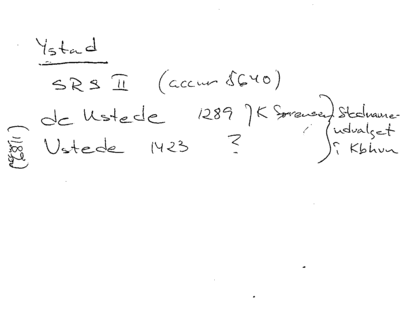 Ystad
SRS II (accur 8640)
de Ustede 1289 } K Sørensen } Stednavne-
udvalget
Ustede 1423 ? i Kbhvn